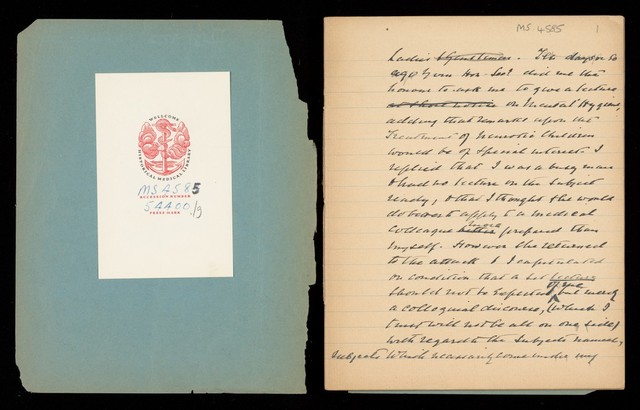 WELLCOME
HISTORICAL MEDICAL LIBRARY
MS 4585
ACCESSION NUMBER
5AA00./9
PRESS MARK
MS. 4585
1
Ladies & Gentlemen. Ten days or so
ago your Hon. Sec. did me the
honour to ask me to give a lecture
at short notice on Mental Hygiene,
adding that remarks upon the
Treatment of Neurotic Children
would be of special interest. I
replied that I was a busy man
& had no lecture on the subject
ready, & that I thought she would
do better to apply to a medical
colleague better more prepared than
myself. However she returned
to the attack & I capitulated
on condition that a set lecture
should not be expected of me, but merely
a colloquial discourse, (which I
trust will not be all on one side)
with regard to the subjects named,
subjects which necessarily come under my